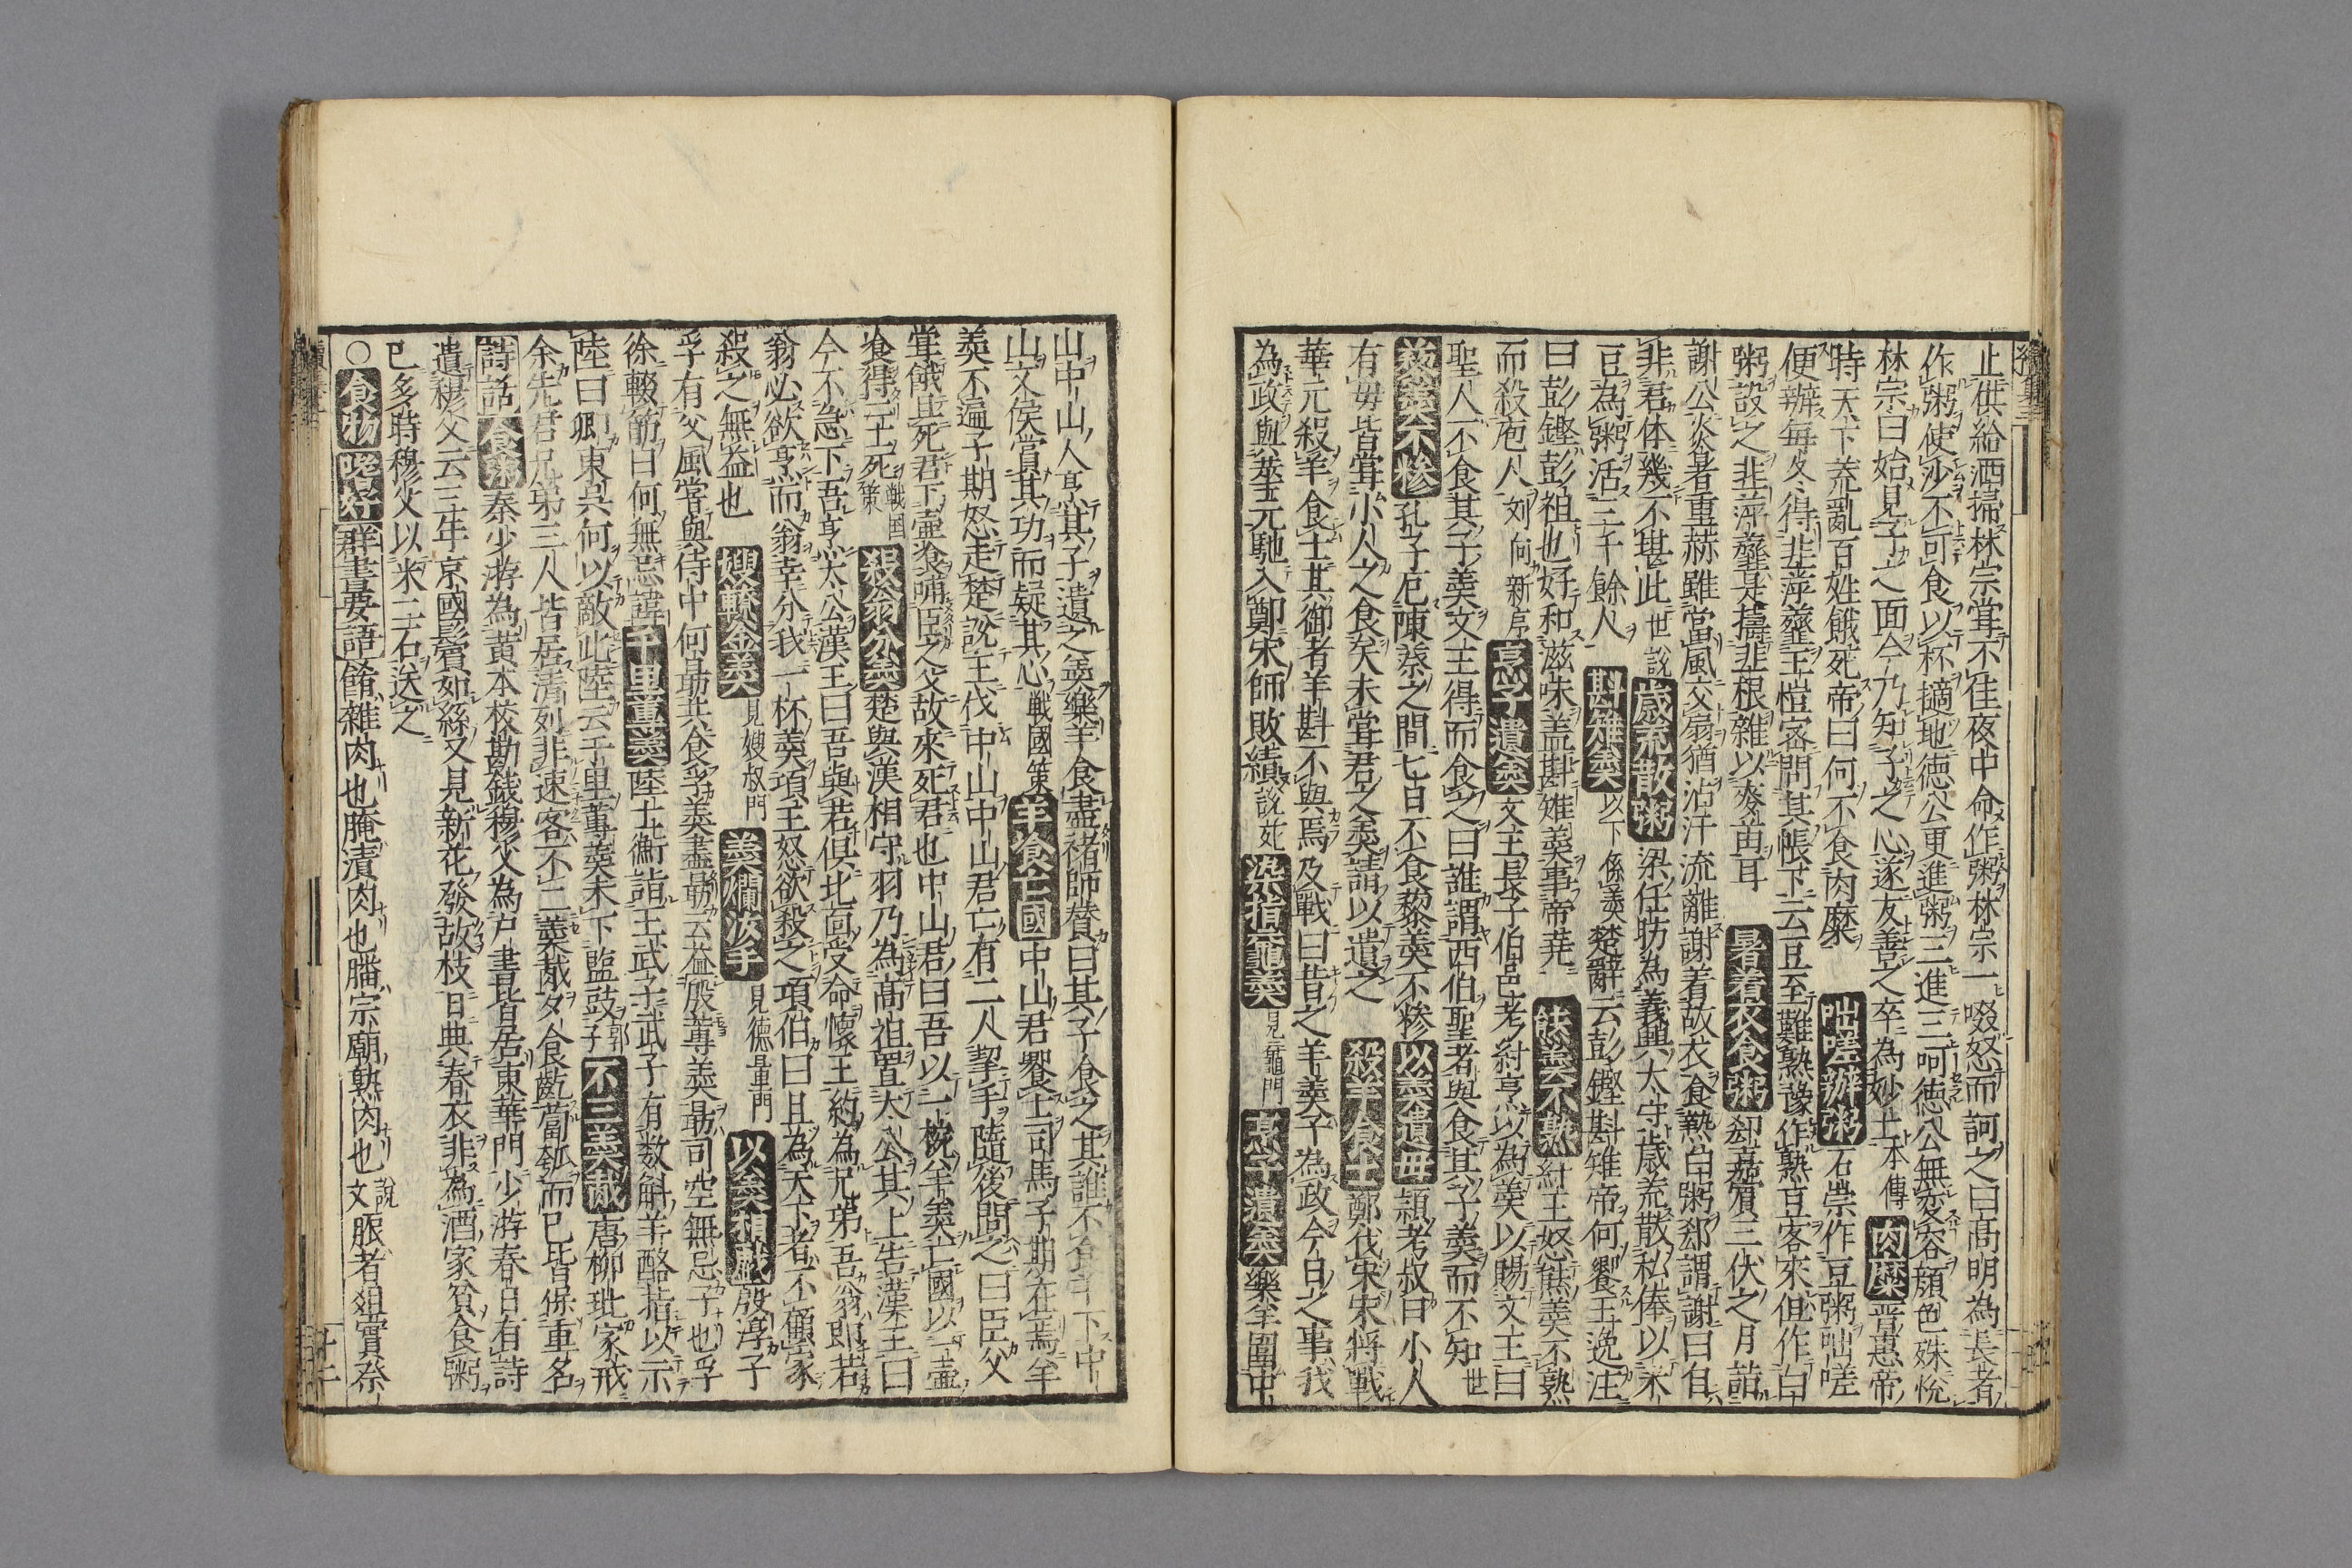 止供給洒掃林宗甞不佳夜中命作粥林宗一啜怒而訶之曰高明為長者
作粥使沙不可食以杯擿地徳公更進粥三進三呵徳公無変容顔色殊悅
林宗曰始見子之面今乃知子之心遂友善之卒為妙士本傳 肉糜 晋惠帝
時天下荒亂百姓餓死帝曰何不食肉糜 咄嗟辦粥 石崇作豆粥咄嗟
便辦每冬得韭蓱虀王愷密問其帳下云豆至難熟豫作熟豆客來但作白
粥設之韭蓱虀是擣韭根雜以麥苗耳 暑着衣食粥 郄嘉賔三伏之月詣
謝公炎暑重赫雖當風交扇猶沾汗流離謝着故衣食熱白粥郄謂謝曰
非君体幾不堪此世說 歳荒散粥 梁任昉為義興太守歳荒散私俸以米
豆為粥活三千餘人 斟雉羹 以下係羹楚辭云彭鏗斟雉帝何饗王逸注
曰彭鏗彭祖也好和滋味盖斟雉羹事帝尭 熊羹不熟 紂王怒熊羹不熟
而殺庖人刘向新序 烹子遺羹 文王長子伯邑考紂烹以為羹以賜文王曰
聖人不食其子羹文王得而食之曰誰謂西伯聖者與食其子羹而不知世
藜羹不糝 孔子厄陳蔡之間七日不食藜羹不糝 以羹遺母 頴考叔曰小人
有毋皆甞小人之食矣未甞君之羹請以遺之 殺羊食士 鄭伐宋宋將戰
華元殺羊食士其御者羊斟不與焉及戰曰昔之羊羹子為政今日之事我
為政與華元馳入鄭宋師敗績說苑 染指黿羹 見黿門 烹子遺羹 樂羊圍中
山中山人烹其子遺之羹樂羊食盡褚師賛曰其子食之其誰不食羊下中
山文侯賞其功而疑其心戰國策 羊食亡國 中山君饗士司馬子期在焉羊
羹不遍子期怒走楚說王伐中山中山君亡有二人挈手隨後問之曰臣父
甞餓且死君下壷飡哺臣之父故來死君也中山君曰吾以一椀羊羹亡國以一壷
飡得二士死戦国策 殺翁分羹 楚與漢相守羽乃為高祖置太公其上告漢王曰
今不急下吾烹太公漢王曰吾與若俱北靣受命懷王約為兄弟吾翁即若
翁必欲烹而翁幸分我一杯羹項王怒欲殺之項伯曰且為天下者不顧家
殺之無益也 嫂轑金羹 見嫂叔門 羹爛汝手 見徳量門 以羹相戯 殷淳子
孚有父風嘗與侍中何勗共食孚羹盡勗云益殷蓴羹勗司空無忌子也孚
徐輟筯曰何無忌諱 千里蓴羹 陸士衡詣王武子武子有数斛羊酪指以示
陸曰卿東呉何以敵此陸云千里蓴羹未下塩豉郭子 不二羹胾 唐柳玭家戒
余先君兄弟三人皆居清列非速客不二羹胾夕食齕蔔瓠而已皆保重名
詩話 食粥 秦少游為黄本校勘錢穆父為户書皆居東華門少游春日有詩
遺穆父云三年京國鬢如絲又見新花發故枝日典春衣非為酒家貧食粥
已多時穆父以米二石送之
○食物 嗜好 群書要語 餚雜肉也腌漬肉也膰宗廟熟肉也說文脤者俎實祭
十二